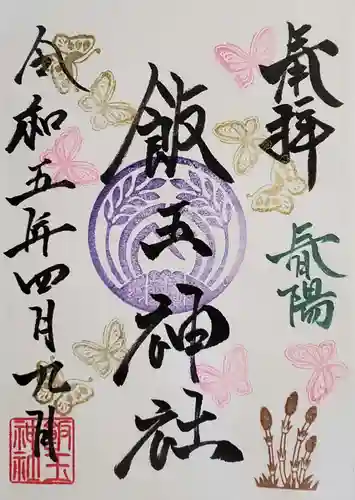 奉拝
春陽
飯玉神社
令和五年四月九日
飯玉
神社